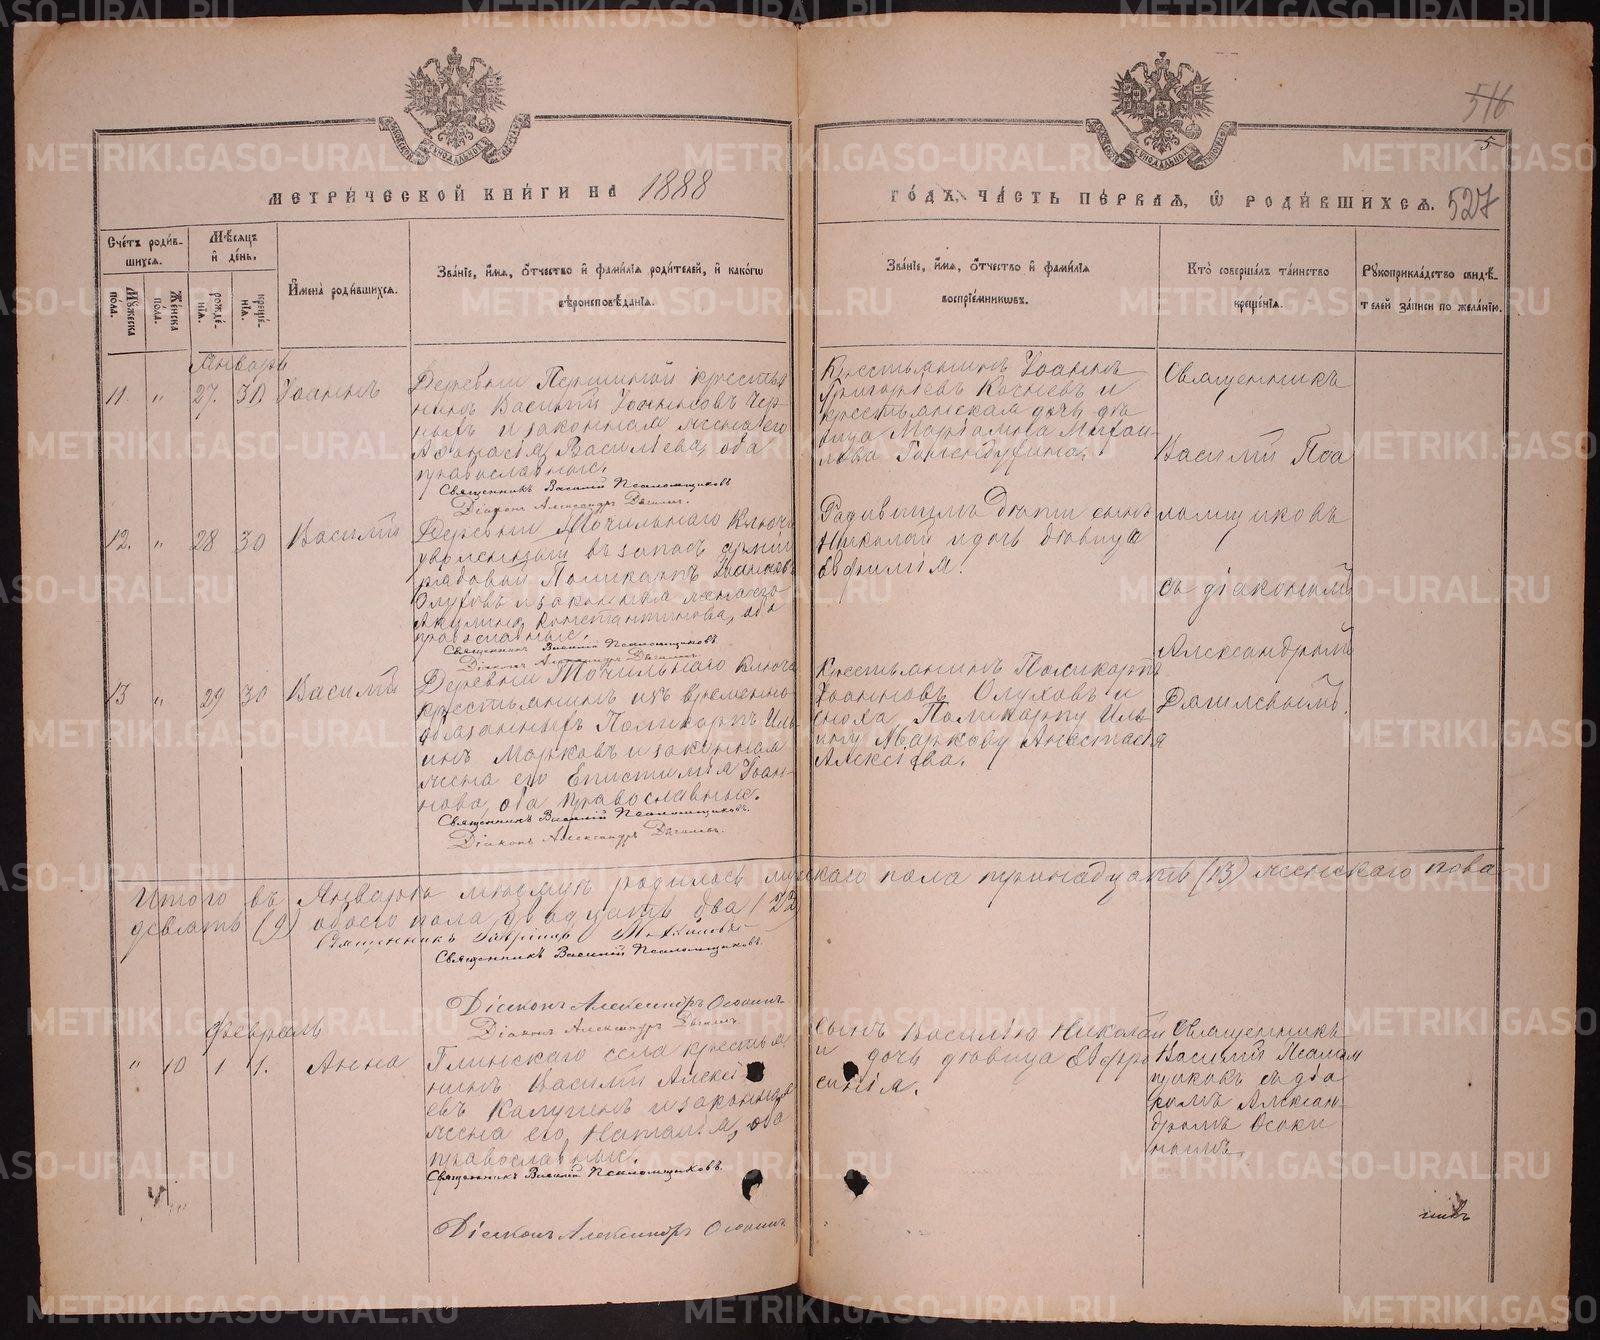 516
5
МЕТРИ́ЧЕСКОЙ КНИ́ГИ НА 1888
ГО́ДЪ, ЧА́СТЬ ПЕ́РВАѦ, Ѡ РОДИ́ВШИХСѦ. 527
Сче́тъ роди́в-
шихсѧ.
Мѣ́сѧцъ
и҆ де́нь.
Му́жеска по́ла.
Же́нска по́ла.
рожде́-нїѧ.
креще́-нїѧ.
И҆мена̀ роди́вшихсѧ.
Зва́нїе, и҆́мѧ, ѻ҆́тчество и҆ фами́лїѧ роди́телей, и҆ како́гѡ
вѣроисповѣ́данїѧ.
Зва́нїе, и҆́мѧ, ѻ҆́тчество и҆ фами́лїѧ
воспрїе́мникѡвъ.
Кто̀ соверша́лъ та́инство
креще́нїѧ.
Рꙋкоприкла́дство свидѣ́-
телей за́писи по жела́нїю.
Январь
11. „ 27. 30 Іоаннъ
Деревни Першиной крестья
нинъ Василій Іоанновъ Чер-
ныхъ и законная жена его
Аѳанасія Васильева, оба
православные.
Священникъ Василій Псаломщиковъ
Діаконъ Александръ Дягилевъ.
Крестьянинъ Іоаннъ
Григорьевъ Кочневъ и
крестьянская дочь дѣ
вица Маріамна Михаи-
лова
Священникъ
Василій Псa
12. „ 28 30 Василій
Деревни Точильнаго Ключа
уволенный въ запасъ арміи
рядовой Поликарпъ Іоанновъ
Олуховъ и законная жена его
Акулина Константинова, оба
православные.
Священникъ Василій Псаломщиковъ
Діаконъ Александръ Дягилевъ.
Родившимъ дѣти сынъ
Николай и дочь дѣвица
Евфимія.
ломщиковъ
съ діакономъ
Александромъ
13 „ 29 30 Василій
Деревни Точильнаго Ключа
крестьянинъ изъ временно-
обязанныхъ Поликарпъ Иль-
инъ Марковъ и законная
жена его Епистимія Іоан-
нова, оба православные.
Священникъ Василій Псаломщиковъ.
Діаконъ Александръ Дягилевъ.
Крестьянинъ Поликарпъ
Іоанновъ Олуховъ и
сноха Поликарпу Иль-
ину Маркову Анастасія
Алексіева.
Дягилевымъ.
Итого въ Январѣ мѣсяцѣ родилось мужскаго пола тринадцать (13) женскаго пола
девять (9) обоего пола двадцать два (22)
Священникъ Гавріилъ
Священникъ Василій Псаломщиковъ.
Діаконъ Александръ Осокинъ
Діаконъ Александръ Дягилевъ.
Февраль
„ 10 1 1. Анна
Глинскаго села крестья
нинъ Василій Алексі
евъ Калугинъ и законная
жена его Наталія, оба
православные.
Священникъ Василій Псаломщиковъ.
Діаконъ Александръ Осокинъ
Сынъ Василію Николай
и дочь дѣвица Евфро
синія.
Священникъ
Василій Псалом
щиковъ съ діа
кономъ Алексан-
дромъ Осоки
нымъ.